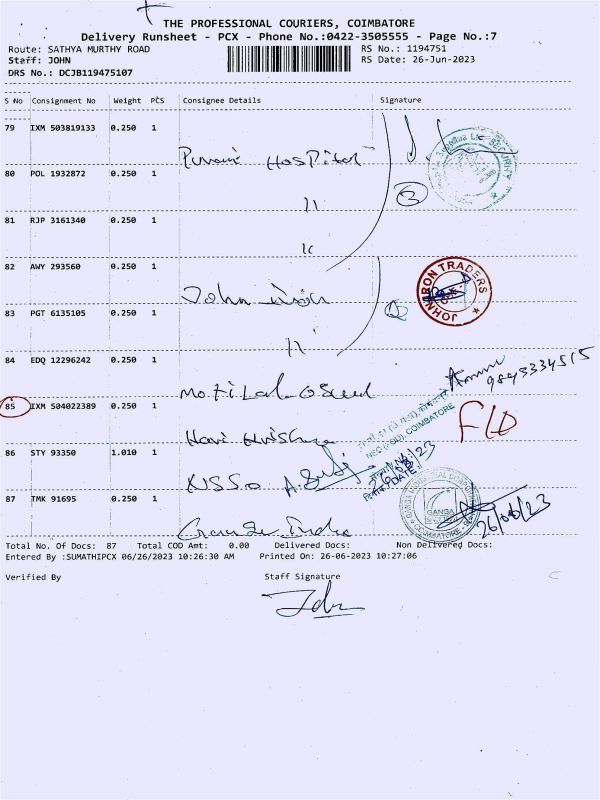 THE PROFESSIONAL COURIERS, COIMBATORE
Delivery Runsheet - PCX - Phone No.:0422-3505555 - Page No.:7
Route: SATHYA MURTHY ROAD RS No.: 1194751
Staff: JOHN RS Date: 26-Jun-2023
DRS No.: DCJB119475107
S No Consignment No Weight PCS Consignee Details Signature
79 IXM 503819133 0.250 1
Hospital
80 POL 1932872 0.250 1
81 RJP 3161340 0.250 1
82 AWY 293560 0.250 1
JOHN BON TRADERS
John
83 PGT 6135105 0.250 1
84 EDQ 12296242 0.250 1
9843334515
Motilal
85 IXM 504022389 0.250 1
COIMBATORE
86 STY 93350 1.010 1
NSSO
DATE
87 TMK 91695 0.250 1
GANGA
COIMBATORE
26/06/23
Total No. Of Docs: 87 Total COD Amt: 0.00 Delivered Docs: Non Delivered Docs:
Entered By :SUMATHIPCX 06/26/2023 10:26:30 AM Printed On: 26-06-2023 10:27:06
Verified By Staff Signature